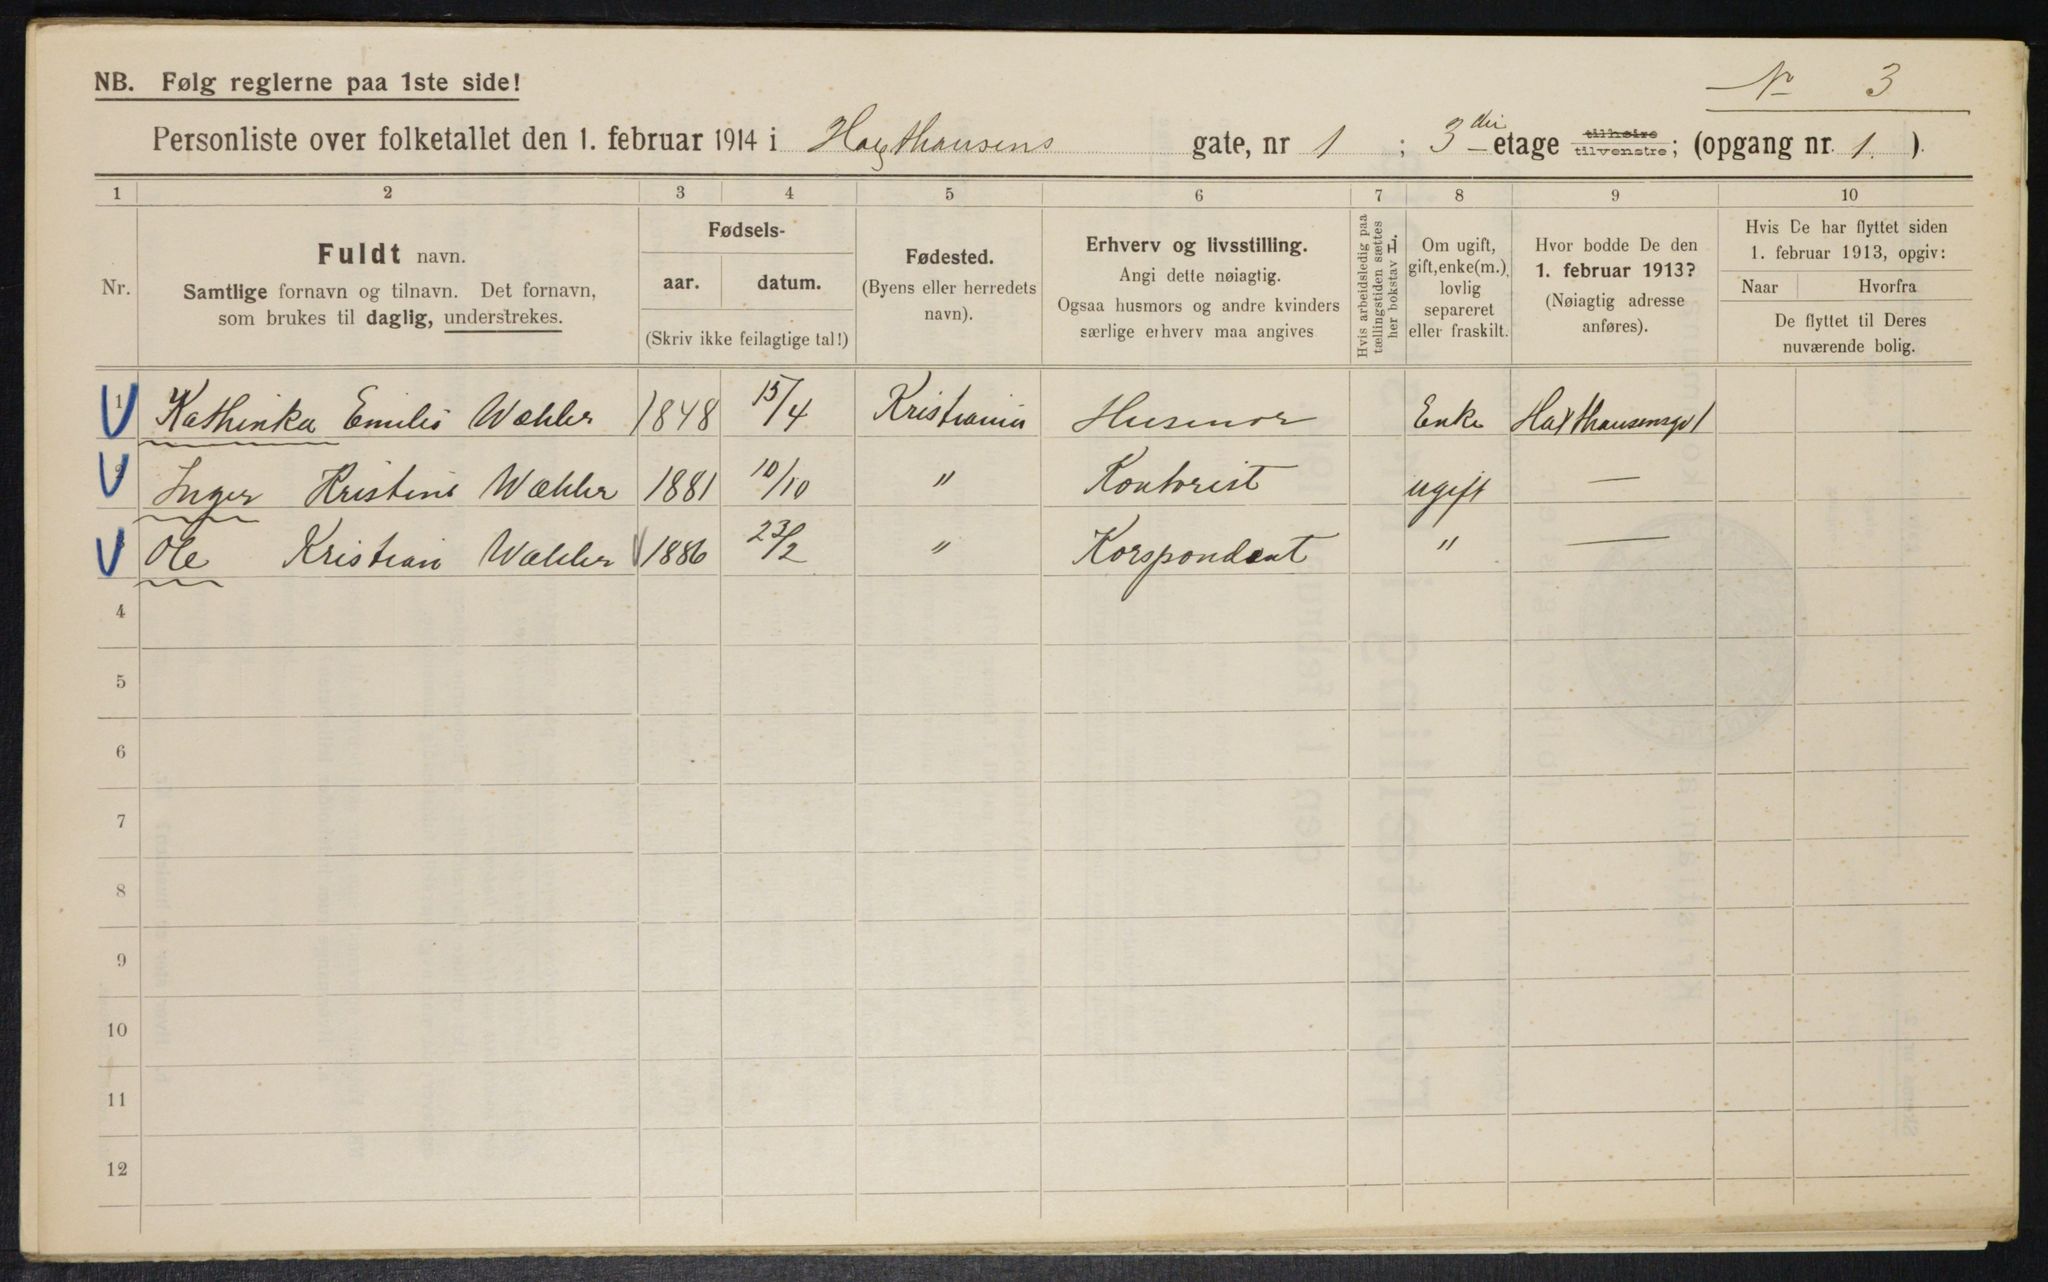 NB. Følg reglerne paa 1ste side!
№ 3
Personliste over folketallet den 1. februar 1914 i Haxthausens gate, nr 1 ; 3die etage tilhøire tilvenstre; (opgang nr. 1. ).
1 2 3 4 5 6 7 8 9 10
Nr.
Fuldt navn.
Samtlige fornavn og tilnavn. Det fornavn,
som brukes til daglig, understrekes.
Fødsels-
aar. datum.
(Skriv ikke feilagtige tal!)
Fødested.
(Byens eller herredets
navn).
Erhverv og livsstilling.
Angi dette nøiagtig.
Ogsaa husmors og andre kvinders
særlige erhverv maa angives
Hvis arbeidsledig paa
tællingstiden sættes
her bokstav L.
Om ugift,
gift, enke(m.),
lovlig
separeret
eller fraskilt.
Hvor bodde De den
1. februar 1913?
(Nøiagtig adresse
anføres).
Hvis De har flyttet siden
1. februar 1913, opgiv:
Naar Hvorfra
De flyttet til Deres
nuværende bolig.
1 Kathinka Emilie Wæhler 1848 15/4 Kristiania Husmor Enke Haxthausensgt 1
2 Inger Kristine Wæhler 1881 10/10 " Kontorist ugift —
3 Ole Kristian Wæhler 1886 23/2 " Korspondent " —
4
5
6
7
8
9
10
11
12